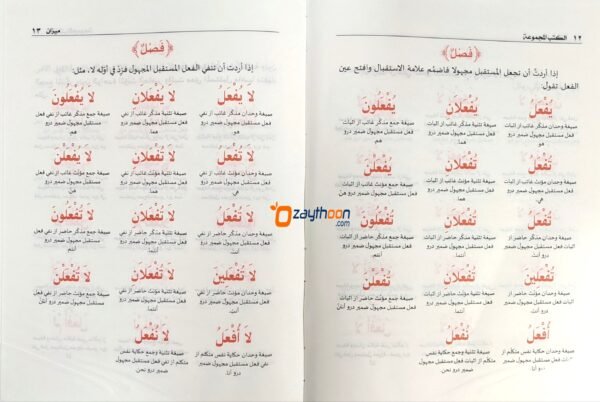 ١٢ الكتب المجموعة
﴿فَصْلٌ﴾
إذا أردتّ أن تجعل المستقبل مجهولا فاضمُم علامة الاستقبال وافتح عين
الفعل تقول:
يُفْعَلُ يُفْعَلَانِ يُفْعَلُونَ
صيغة وحدان مذكّر غائب از اثبات فعل مستقبل مجهول ضمير درو هو
صيغة تثنية مذكّر غائب از اثبات فعل مستقبل مجهول ضمير درو هما
صيغة جمع مذكّر غائب از اثبات فعل مستقبل مجهول ضمير درو هم
تُفْعَلُ تُفْعَلَانِ يُفْعَلْنَ
صيغة وحدان مؤنّث غائب از اثبات فعل مستقبل مجهول ضمير درو هي
صيغة تثنية مؤنّث غائب از اثبات فعل مستقبل مجهول ضمير درو هما
صيغة جمع مؤنّث غائب از اثبات فعل مستقبل مجهول ضمير درو هن
تُفْعَلُ تُفْعَلَانِ تُفْعَلُونَ
صيغة وحدان مذكّر حاضر از اثبات فعل مستقبل مجهول ضمير درو أنت
صيغة تثنية مذكّر حاضر از اثبات فعل مستقبل مجهول ضمير درو أنتما
صيغة جمع مذكّر حاضر از اثبات فعل مستقبل مجهول ضمير درو أنتم
تُفْعَلِينَ تُفْعَلَانِ تُفْعَلْنَ
صيغة وحدان مؤنّث حاضر از اثبات فعل مستقبل مجهول ضمير درو أنتِ
صيغة تثنية مؤنّث حاضر از اثبات فعل مستقبل مجهول ضمير درو أنتما
صيغة جمع مؤنّث حاضر از اثبات فعل مستقبل مجهول ضمير درو أنتنّ
أُفْعَلُ نُفْعَلُ
صيغة وحدان حكاية نفس متكلّم از اثبات فعل مستقبل مجهول ضمير درو أنا
صيغة تثنية وجمع حكاية نفس متكلّم از اثبات فعل مستقبل مجهول ضمير درو نحن
ميزان ١٣
﴿فَصْلٌ﴾
إذا أردتَ أن تنفي الفعل المستقبل المجهول فزِدْ في أوّله لا، مثل:
لَا يُفْعَلُ لَا يُفْعَلَانِ لَا يُفْعَلُونَ
صيغة وحدان مذكّر غائب از نفي فعل مستقبل مجهول ضمير درو هو
صيغة تثنية مذكّر غائب از نفي فعل مستقبل مجهول ضمير درو هما
صيغة جمع مذكّر غائب از نفي فعل مستقبل مجهول ضمير درو هم
لَا تُفْعَلُ لَا تُفْعَلَانِ لَا يُفْعَلْنَ
صيغة وحدان مؤنّث غائب از نفي فعل مستقبل مجهول ضمير درو هي
صيغة تثنية مؤنّث غائب از نفي فعل مستقبل مجهول ضمير درو هما
صيغة جمع مؤنّث غائب از نفي فعل مستقبل مجهول ضمير درو هن
zaythoon.com
لَا تُفْعَلُ لَا تُفْعَلَانِ لَا تُفْعَلُونَ
صيغة وحدان مذكّر حاضر از نفي فعل مستقبل مجهول ضمير درو أنت
صيغة تثنية مذكّر حاضر از نفي فعل مستقبل مجهول ضمير درو أنتما
صيغة جمع مذكّر حاضر از نفي فعل مستقبل مجهول ضمير درو أنتم
لَا تُفْعَلِينَ لَا تُفْعَلَانِ لَا تُفْعَلْنَ
صيغة وحدان مؤنّث حاضر از نفي فعل مستقبل مجهول ضمير درو أنتِ
صيغة تثنية مؤنّث حاضر از نفي فعل مستقبل مجهول ضمير درو أنتما
صيغة جمع مؤنّث حاضر از نفي فعل مستقبل مجهول ضمير درو أنتنّ
لَا أُفْعَلُ لَا نُفْعَلُ
صيغة وحدان حكاية نفس متكلّم از نفي فعل مستقبل مجهول ضمير درو أنا
صيغة تثنية وجمع حكاية نفس متكلّم از نفي فعل مستقبل مجهول ضمير درو نحن